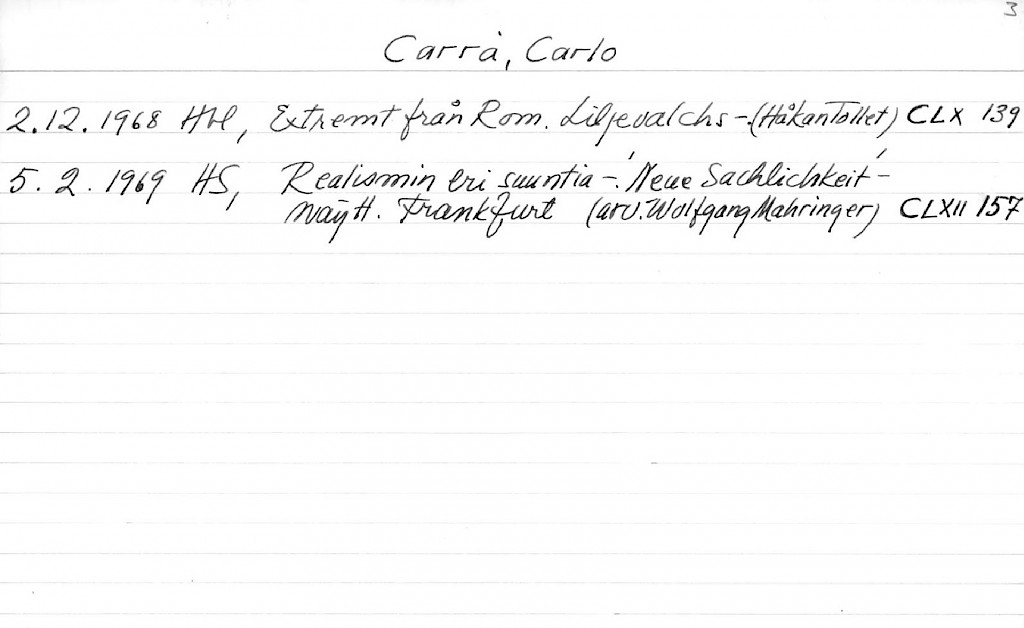 3
Carrà, Carlo
2.12.1968 Hbl, Extremt från Rom. Liljevalchs – (Håkan Tollet) CLX 139
5.2.1969 HS, Realismin eri suuntia – 'Neue Sachlichkeit' –
näytt. Frankfurt (arv. Wolfgang Mahringer) CLXII 157